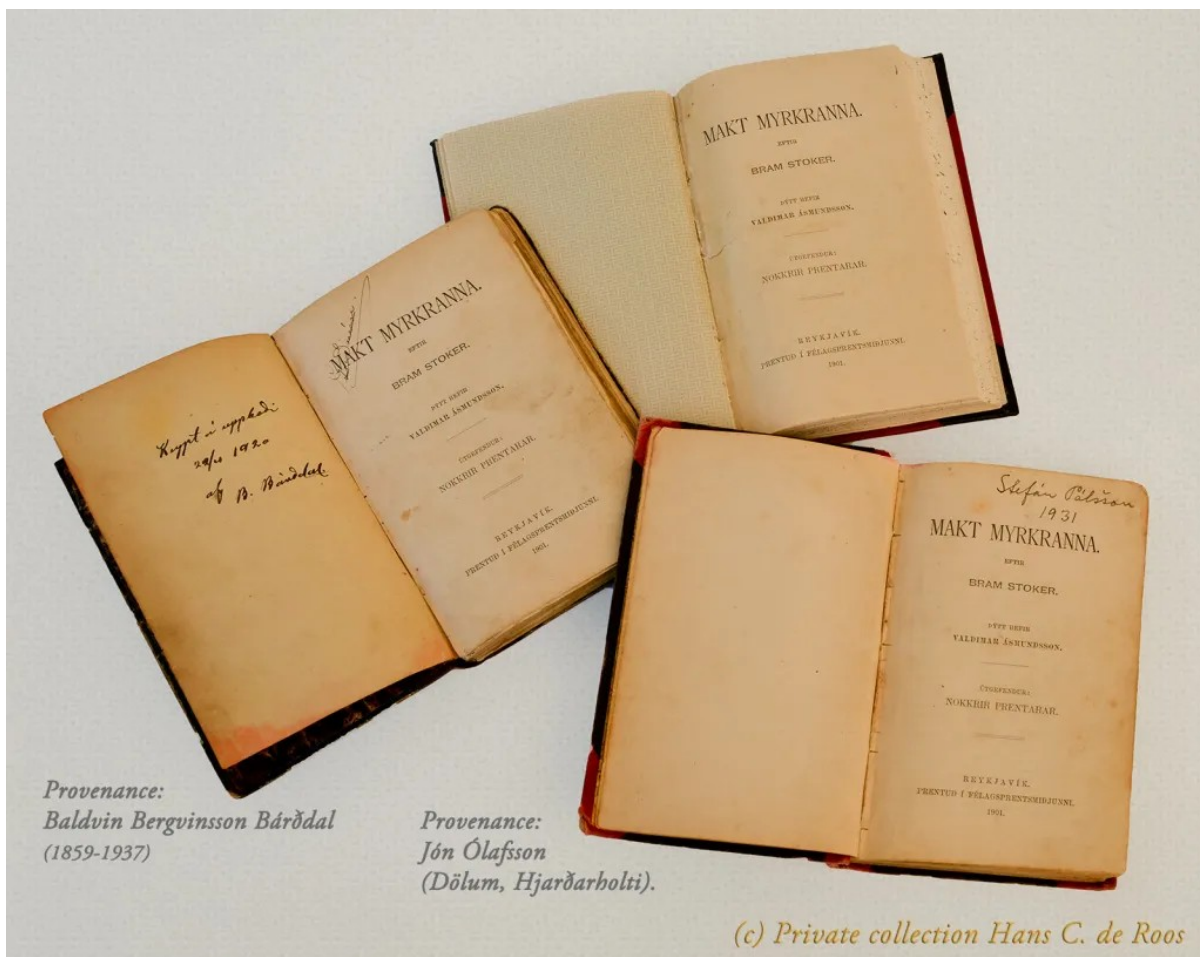 MAKT MYRKRANNA.
EFTIR
BRAM STOKER.
ÞÝTT HEFIR
VALDIMAR ÁSMUNDSSON.
ÚTGEFENDUR:
NOKKRIR PRENTARAR.
REYKJAVÍK.
PRENTUÐ Í FÉLAGSPRENTSMIÐJUNNI.
1901.
Keypt á uppboði
1920
af B. Bárðdal.
MAKT MYRKRANNA.
EFTIR
BRAM STOKER.
ÞÝTT HEFIR
VALDIMAR ÁSMUNDSSON.
ÚTGEFENDUR:
NOKKRIR PRENTARAR.
REYKJAVÍK.
PRENTUÐ Í FÉLAGSPRENTSMIÐJUNNI.
1901.
Stefán Pálsson
1931
MAKT MYRKRANNA.
EFTIR
BRAM STOKER.
ÞÝTT HEFIR
VALDIMAR ÁSMUNDSSON.
ÚTGEFENDUR:
NOKKRIR PRENTARAR.
REYKJAVÍK.
PRENTUÐ Í FÉLAGSPRENTSMIÐJUNNI.
1901.
Provenance:
Baldvin Bergvinsson Bárðdal
(1859-1937)
Provenance:
Jón Ólafsson
(Dölum, Hjarðarholti).
(c) Private collection Hans C. de Roos